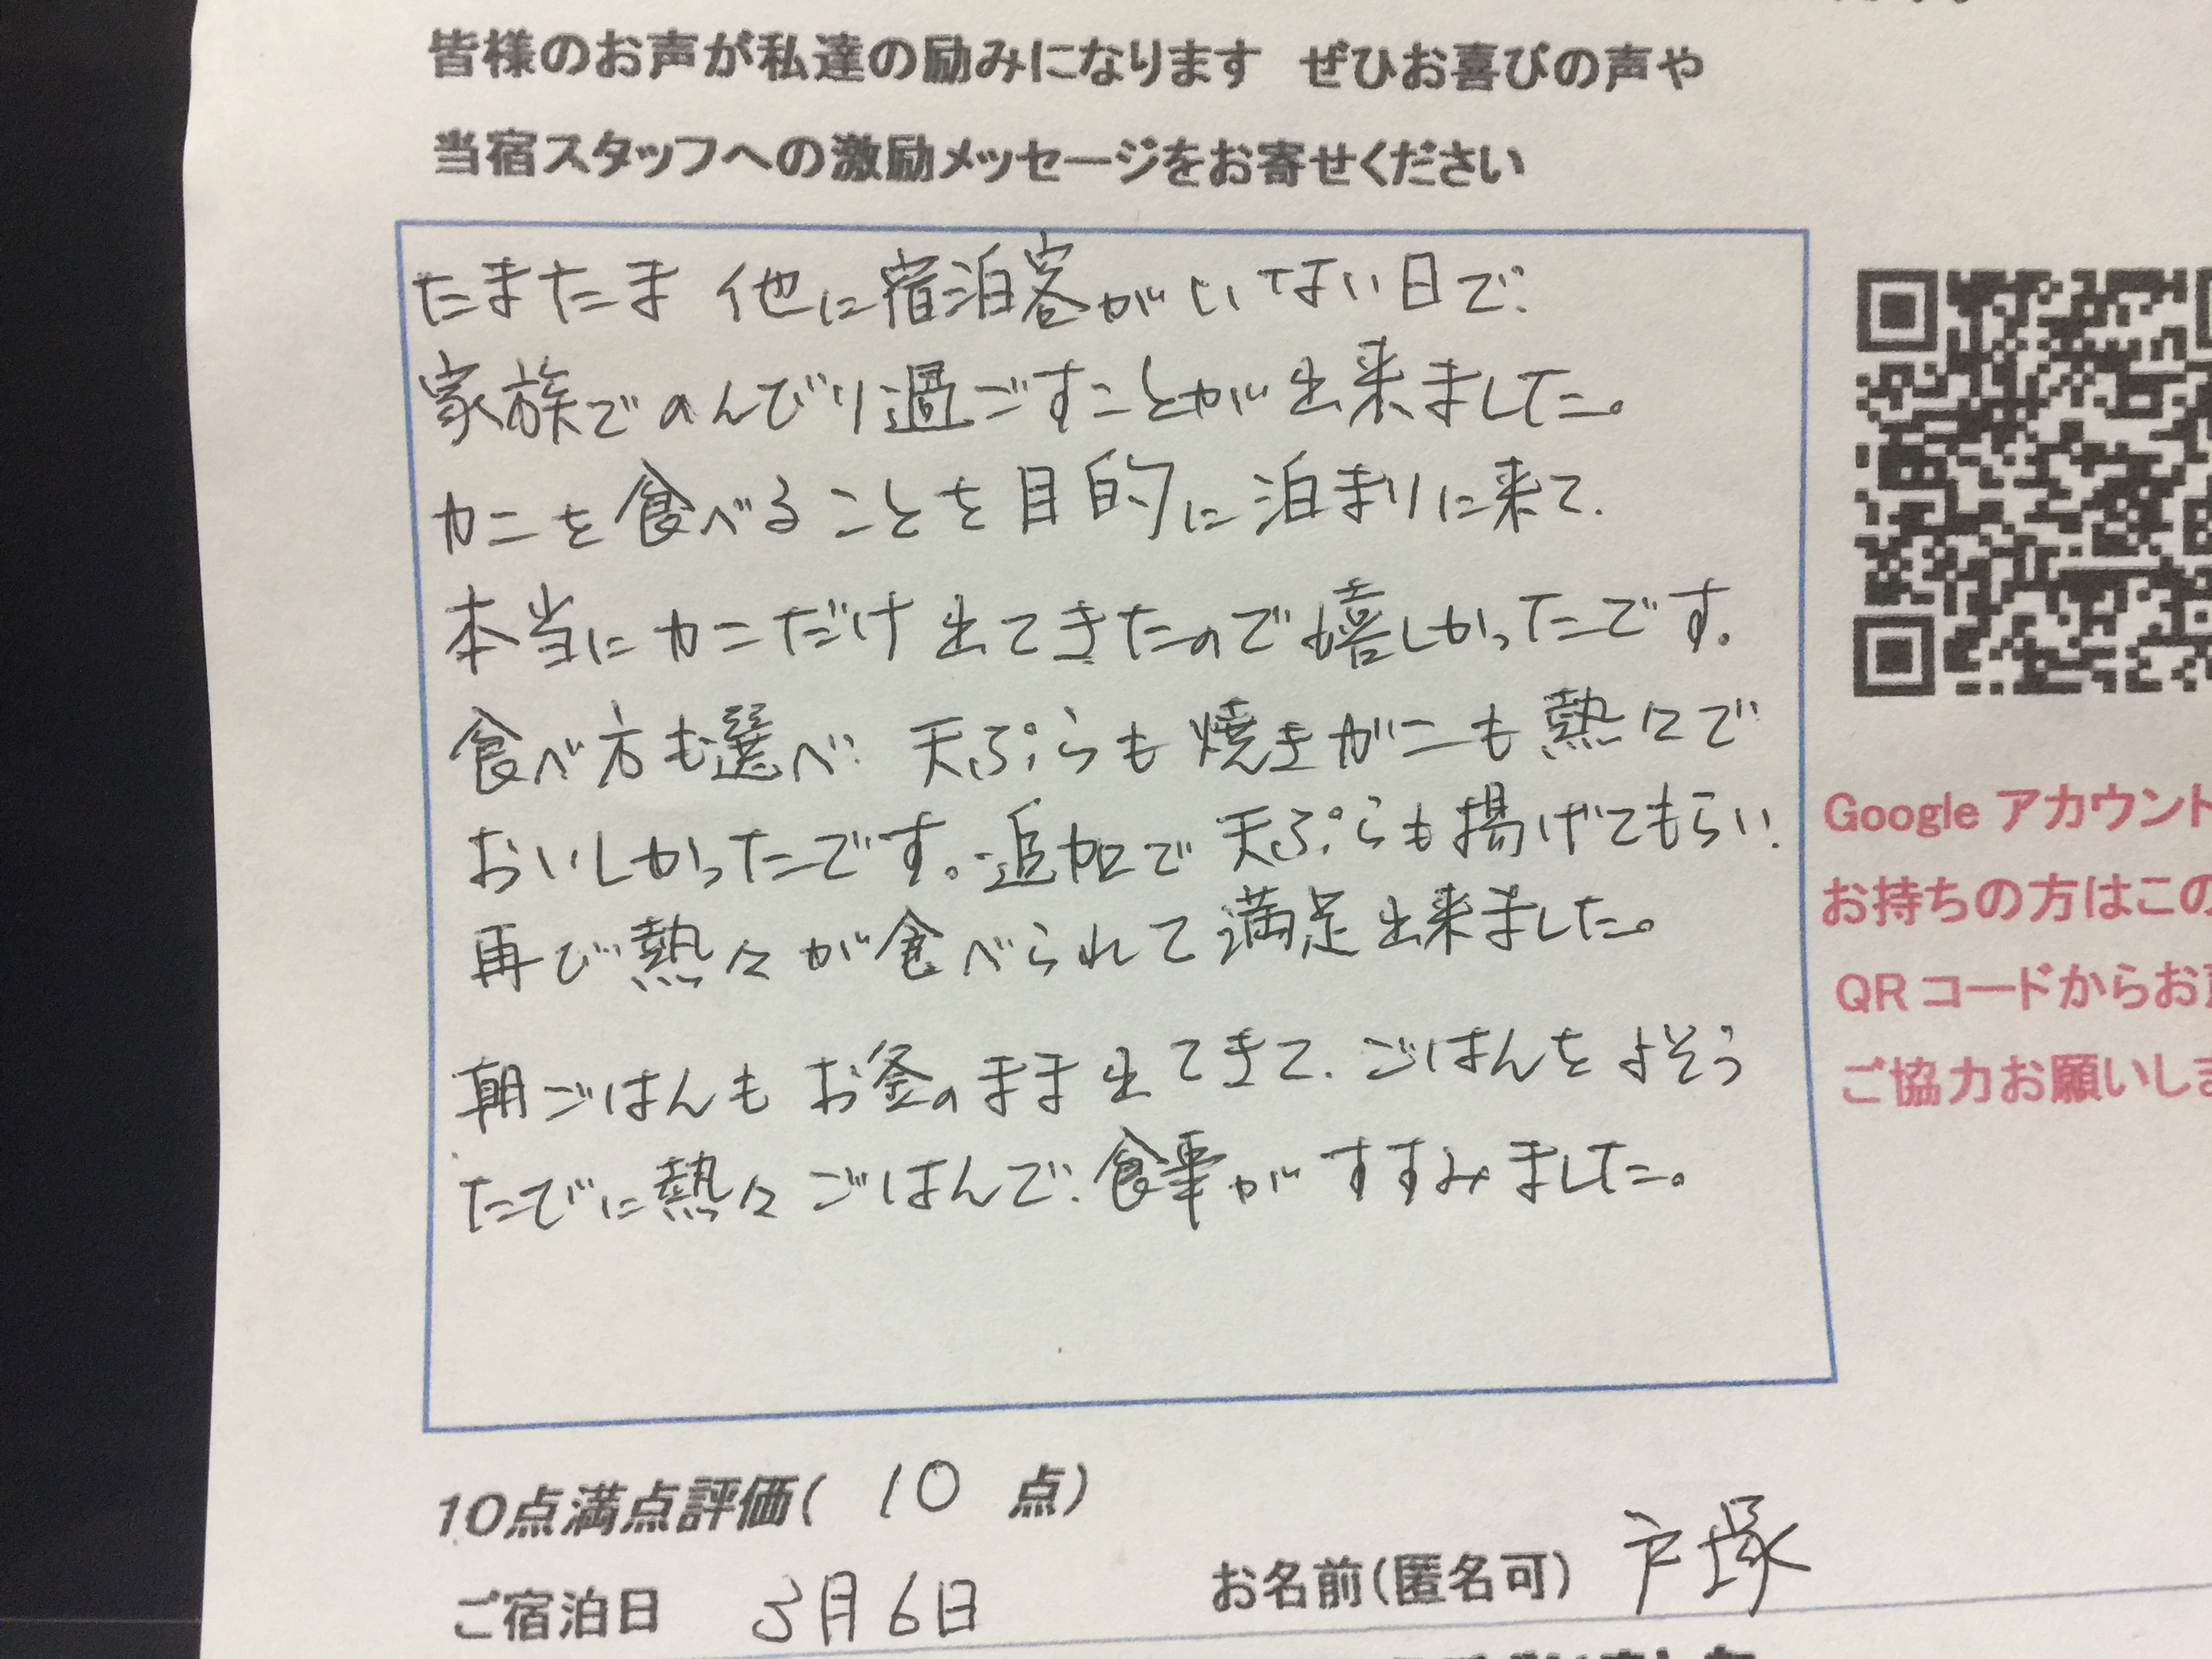 皆様のお声が私達の励みになります ぜひお喜びの声や
当宿スタッフへの激励メッセージをお寄せください
たまたま 他に宿泊客がいない日で、
家族でのんびり過ごすことが出来ました。
カニを食べることを目的に泊まりに来て、
本当にカニだけ出てきたので嬉しかったです。
食べ方も選べ、天ぷらも焼きガニも熱々で
おいしかったです。追加で天ぷらも揚げてもらい、
再び熱々が食べられて満足出来ました。
朝ごはんもお釜のまま出てきて、ごはんをよそう
たびに熱々ごはんで、食事がすすみました。
Google アカウント
お持ちの方はこの
QR コードからお
ご協力お願いしま
10点満点評価( 10 点)
ご宿泊日 3月6日
お名前(匿名可) 戸塚